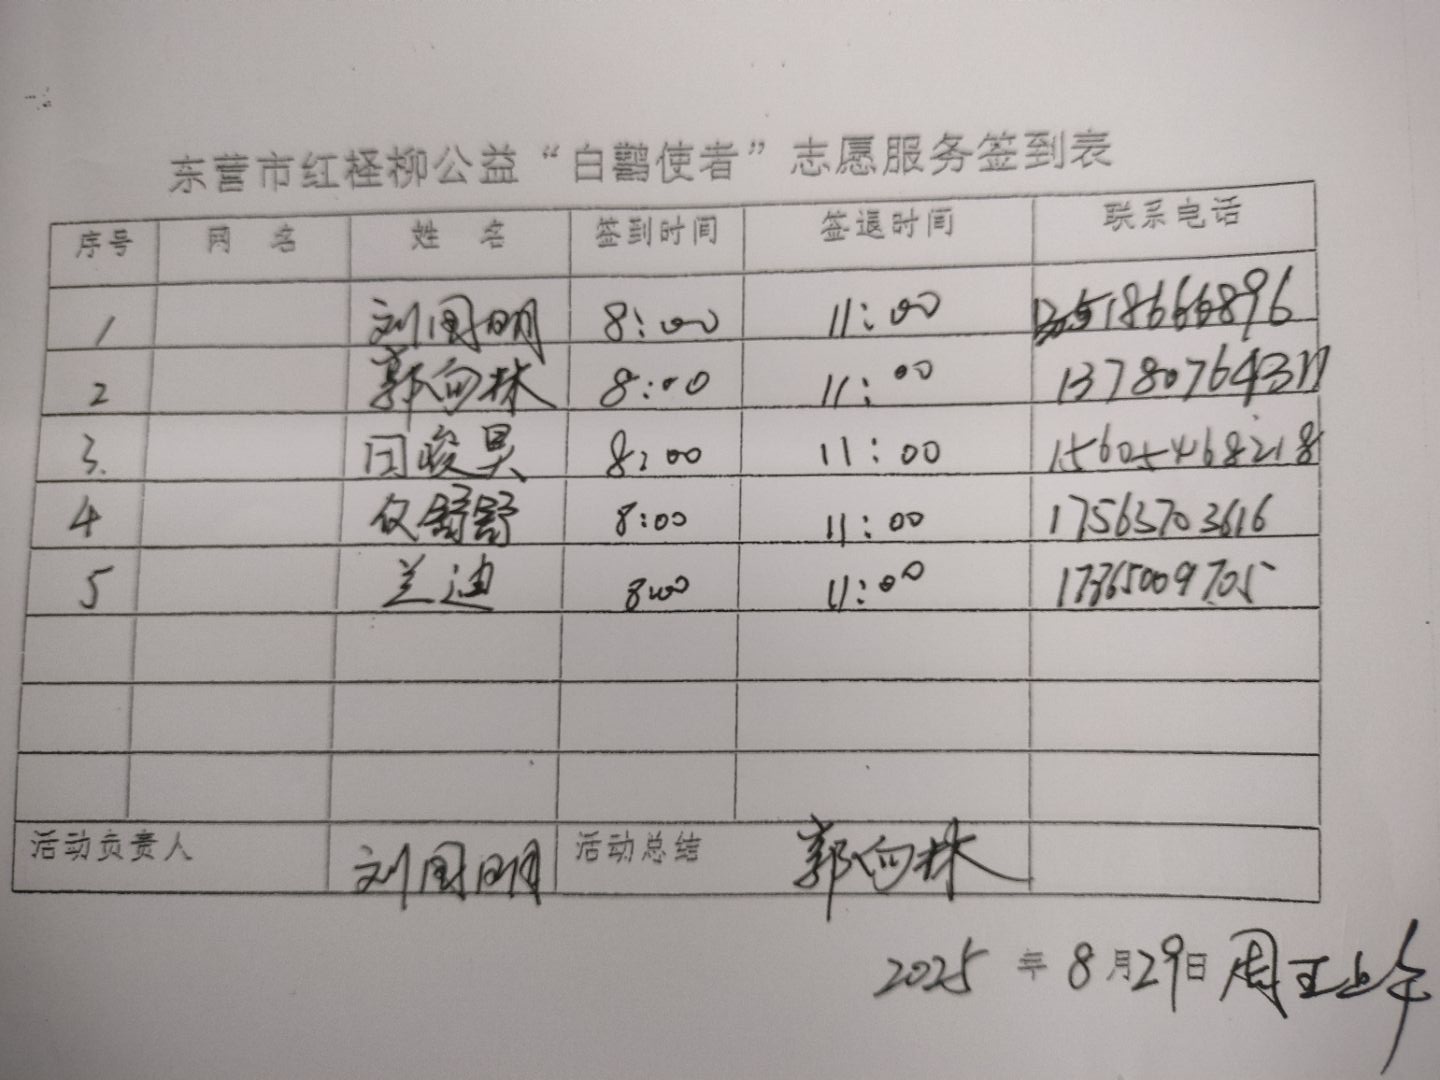 东营市红柽柳公益“白鹳使者”志愿服务签到表
序号 网 名 姓 名 签到时间 签退时间 联系电话
1 刘国明 8:00 11:00 18666896
2 郭向林 8:00 11:00 13780764311
3. 闫峻昊 8:00 11:00 15605468218
4 仪舒舒 8:00 11:00 17563703616
5 兰迪 8:00 11:00 17365009705
活动负责人 刘国明 活动总结 郭向林
2025 年 8 月 29 日 周五上午